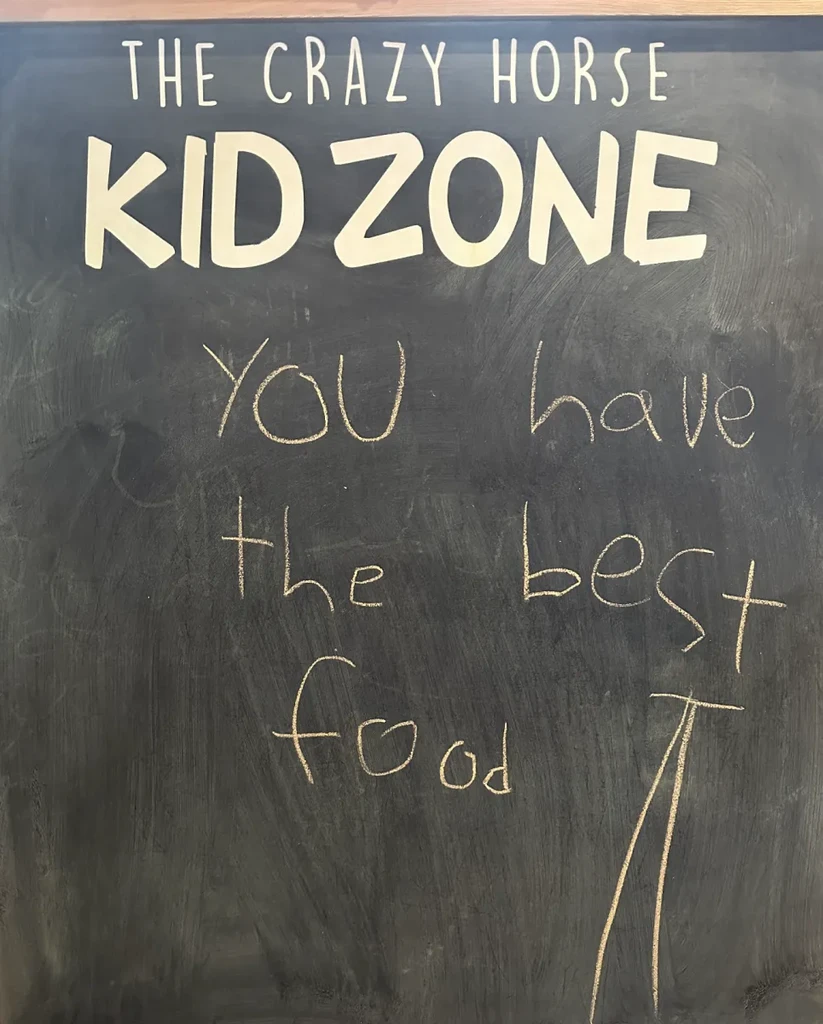 THE CRAZY HORSE
KID ZONE
YOU have
the best
food